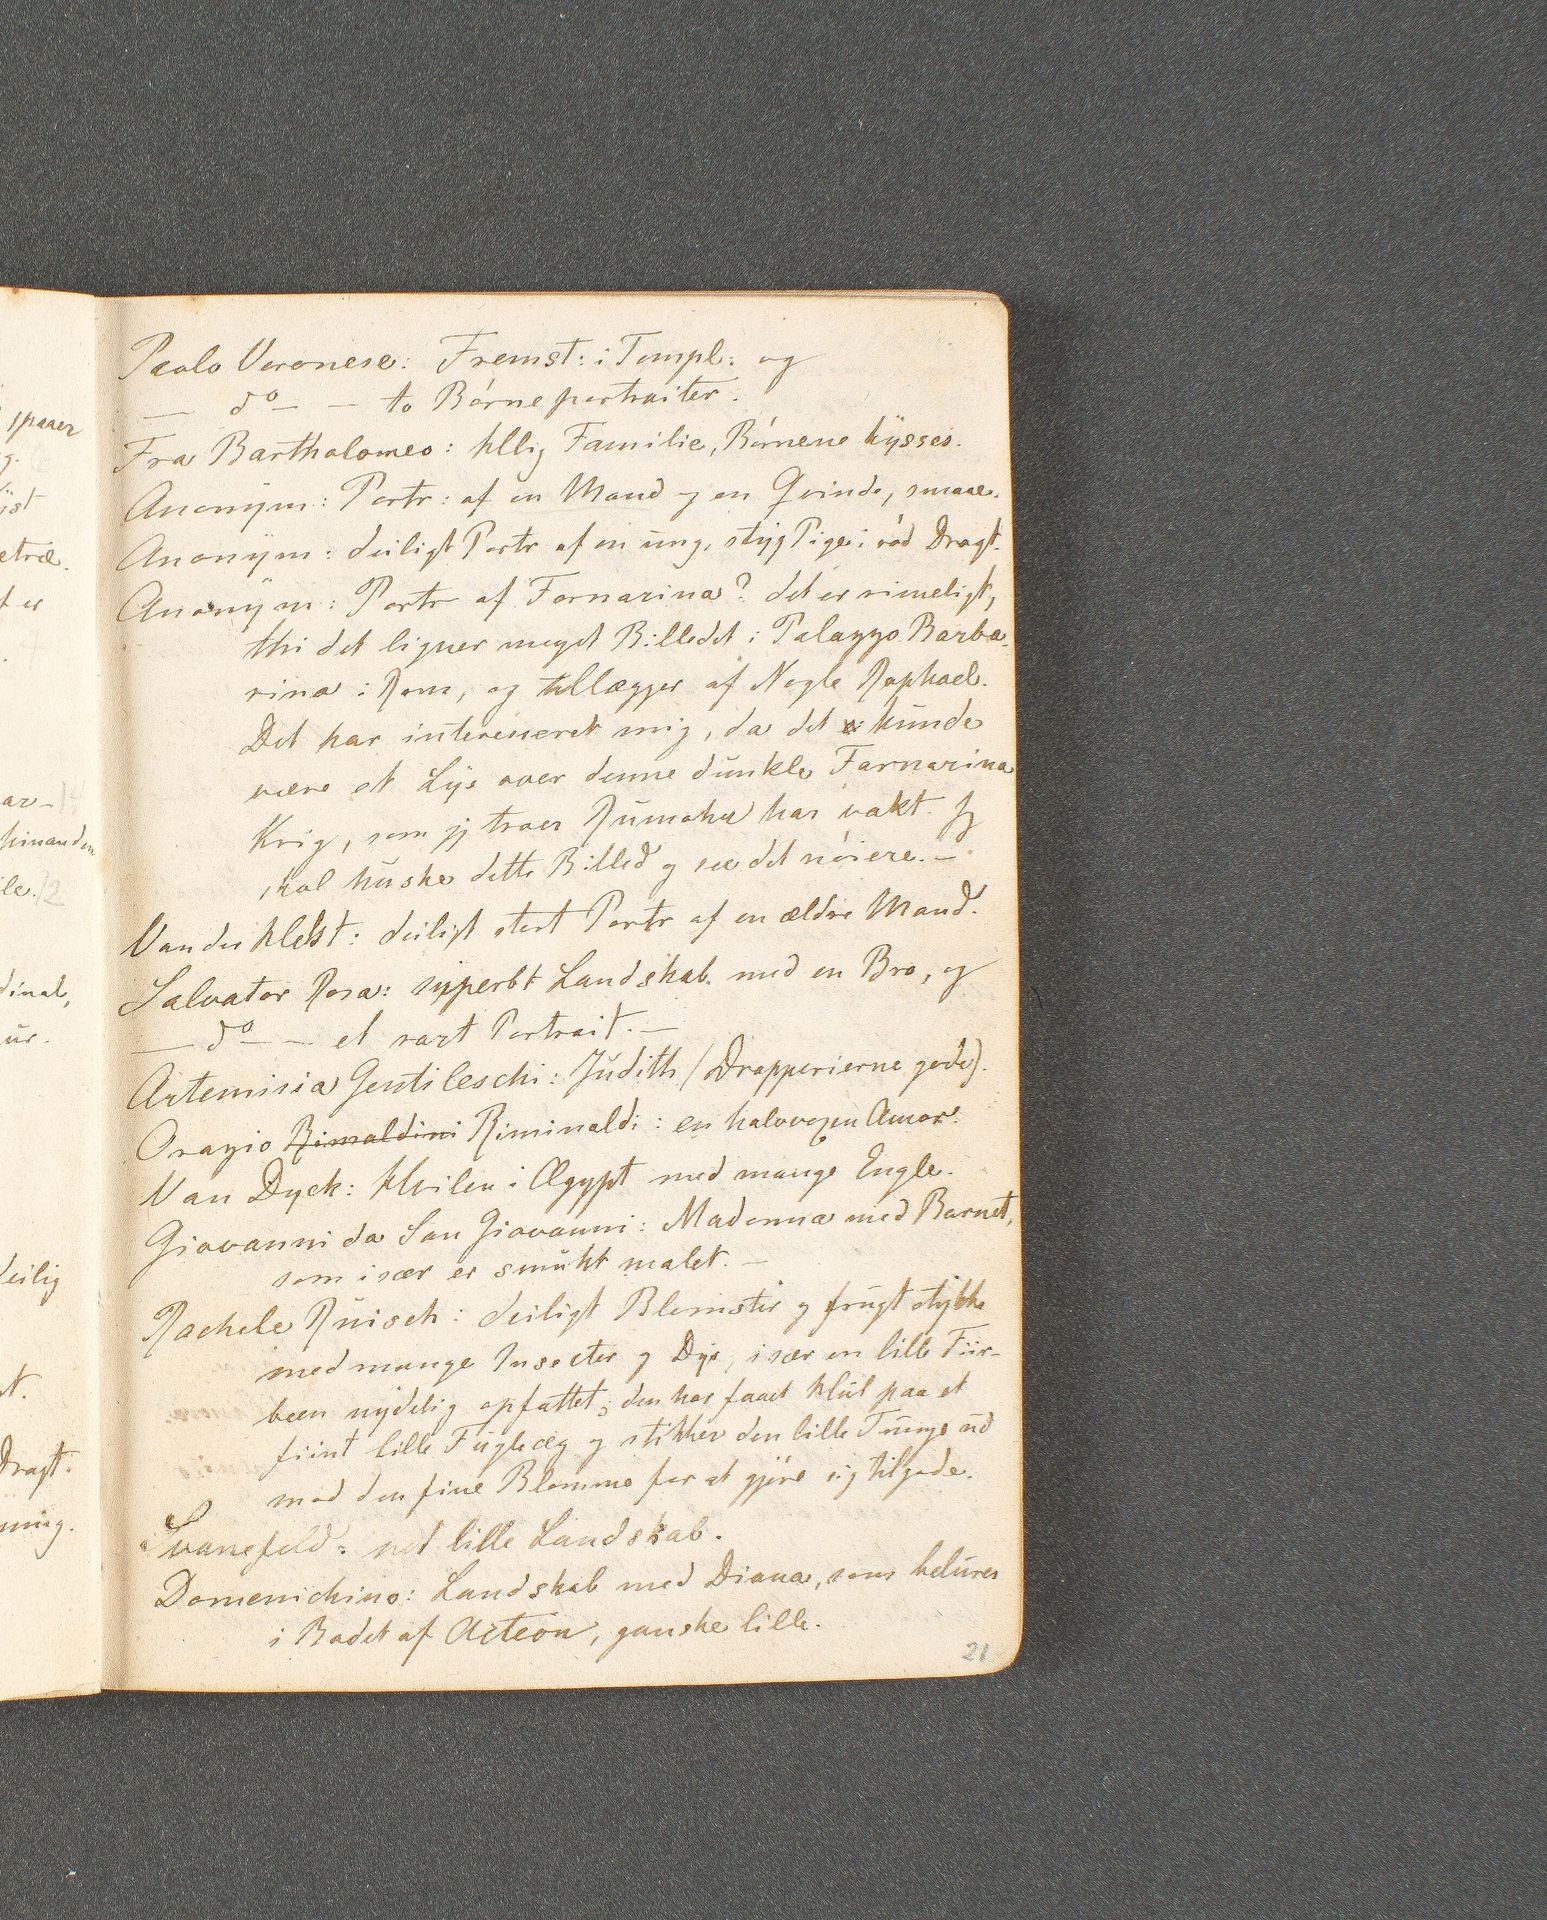 Paolo Veronese: Fremst: i Templ: og
— do — — to Børneportraiter.
Fra Bartholomeo: hllig Familie, Børnene kysses.
Anonÿm: Portr: af en Mand og en Qvinde, smaae.
Anonÿm: deiligt Portr af en ung, styg Pige i rød Dragt.
Anonÿm: Portr af Fornarina? det er rimeligt,
thi det ligner meget Billedet i Palazzo Barba-
rina i Rom, og tillægges af Nogle Raphael.
Det har interesseret mig, da det kunde
være et Lys over denne dunkle Farnarina
Krig, som jeg troer Rumohr har vakt. Jeg
skal huske dette Billed og see det nøiere. —
Van der Helst: deiligt stort Portr af en ældre Mand.
Salvator Rosa: superbt Landskab med en Bro, og
— do — — et rart Portrait. —
Artemisia Gentileschi: Judith (Drapperierne gode).
Orazio Rimaldini Riminaldi: en halvvoxen Amor.
Van Dyck: Hvilen i Ægypt med mange Engle.
Giovanni da San Giovanni: Madonna med Barnet,
som især er smukt malet. —
Rachele Ruisch: deiligt Blomster og frugt stykke
med mange Insecter og Dyr, især en lille Fiir-
been nydelig opfattet; den har faaet Hul paa et
fiint lille Fugleæg og stikker den lille Tunge ud
mod den fine Blomme for at gjøre sig tilgode.
Svanefeld: net lille Landskab.
Domenichino: Landskab med Diana, som belures
i Badet af Acteon, ganske lille.
21
spaaer
etræ.
t er
hinanden
12
dinal,
ur.
deilig
Dragt.